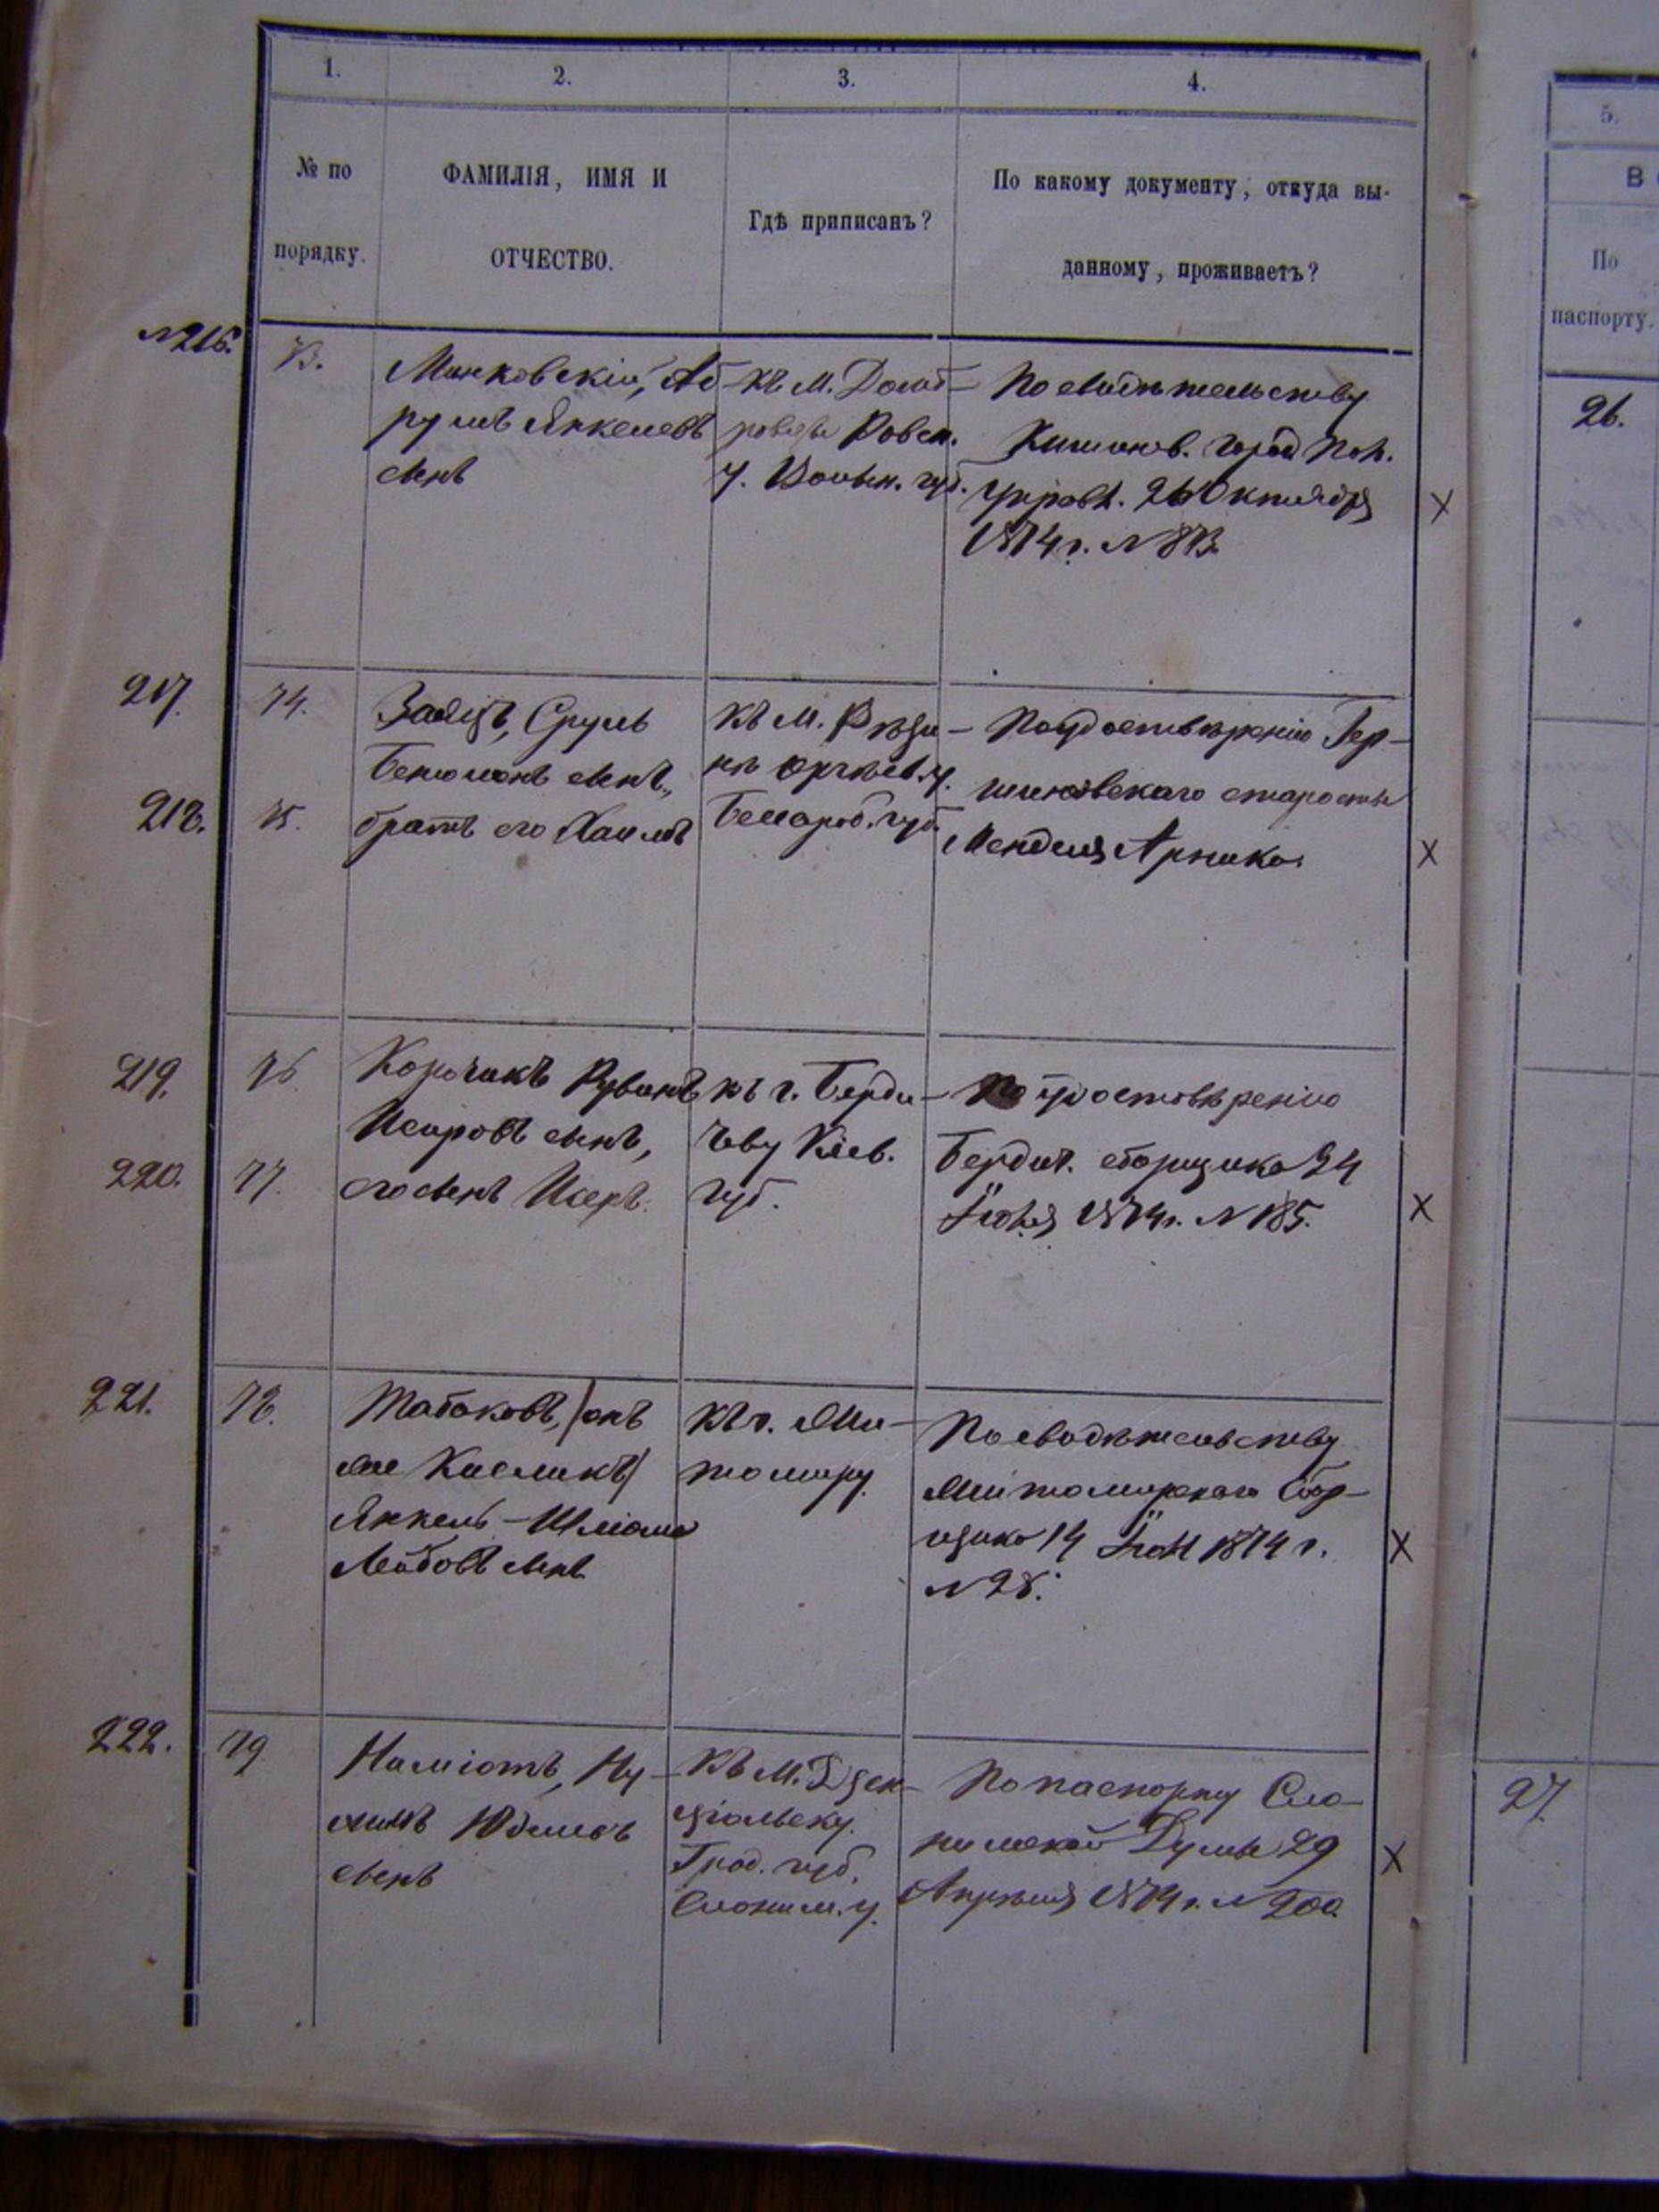 1.
2.
3.
4.
№ по
порядку.
ФАМИЛІЯ, ИМЯ И
ОТЧЕСТВО.
Гдѣ приписанъ?
По какому документу, откуда вы-
данному, проживаетъ?
№ 216.
73.
Минковскій, Аб
румъ Янкелевъ
сынъ
къ м. Домб
ровицы Ровен.
у. Волын. губ.
По свидѣтельству
Кишинев. город. Пол.
Управл. 26 Октября
1874 г. № 873.
X
217.
74.
Заяцъ, Сруль
Беньоминъ сынъ,
218.
75.
братъ его Хаимъ
къ м. Рѣзи
нѣ Оргѣев. у.
Бессараб. губ.
По удоствѣренію Гер-
шиновскаго старосты
Менделя
X
219.
76.
Корочикъ Рувинъ
Исировъ сынъ,
220.
77.
его сынъ Исеръ.
къ г. Берди-
чеву Кіев.
губ.
По удостовѣренію
Бердич. сборщика 24
Іюля 1874 г. № 185.
X
221.
78.
Табаковъ, /онъ
же Кисликъ/
Янкель-Шліома
Лейбовъ сынъ
къ г. Жи-
томиру.
По свидѣтельству
Житомирскаго Сбор-
щика 14 Іюл 1874 г.
№ 28.
X
222.
79
Наміотъ, Ну-
химъ Юдимовъ
сынъ
къ м. Дзен-
ціольску.
Грод. губ.
Слоним. у.
По паспорту Сло-
нимской Думы 29
Апрѣля 1874 г. № 200.
X
5.
В
По
паспорту.
26.
27.